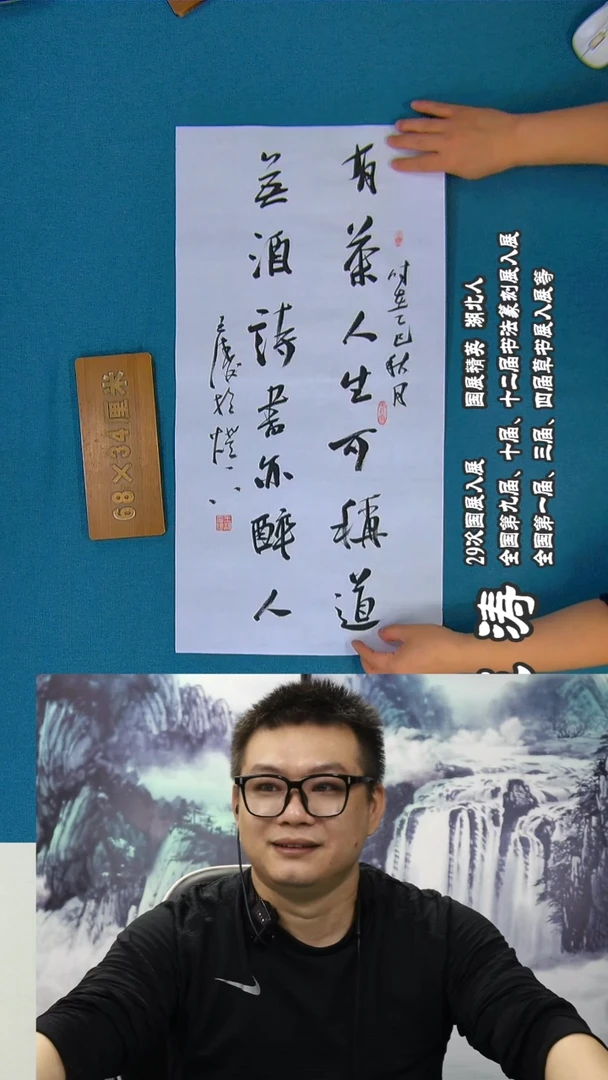 时在乙巳秋月
有茶人生可稱道
無酒詩書亦醉人
68×34厘米
涛
29次国展入展 国展精英 湖北人
全国第九届、十届、十二届书法篆刻展入展
全国第一届、三届、四届草书展入展等